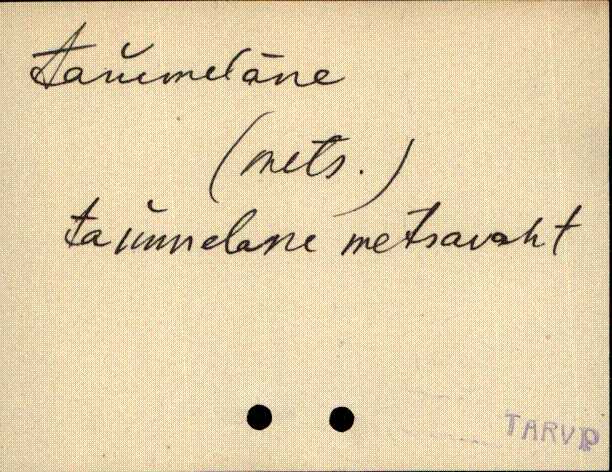 taŭmelane
(mets.)
taŭmelane metsavaht
TARVP